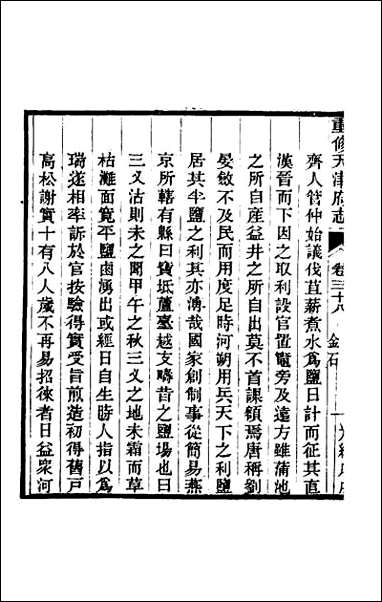 重修天津府志 卷三十八 金石 一
齊人管仲始議伐菹薪煮水為鹽日計而征其直
漢晉而下因之取利設官置竈旁及遠方雖蒲池
之所自產益井之所自出莫不首課領焉唐稱劉
晏斂不及民而用度足時河朔用兵天下之利鹽
居其半鹽之利其亦溥哉國家創制事從簡易燕
京所轄有縣曰寶坻蘆臺越支疇昔之鹽場也曰
三义沽則未之聞甲午之秋三义之地未霜而草
枯灘面寬平鹽鹵湧出或經日自生時人指以為
瑞遂相率訴於官按驗得實受旨煎造初得舊戶
高松謝實十有八人歲不再易招徠者日益衆河